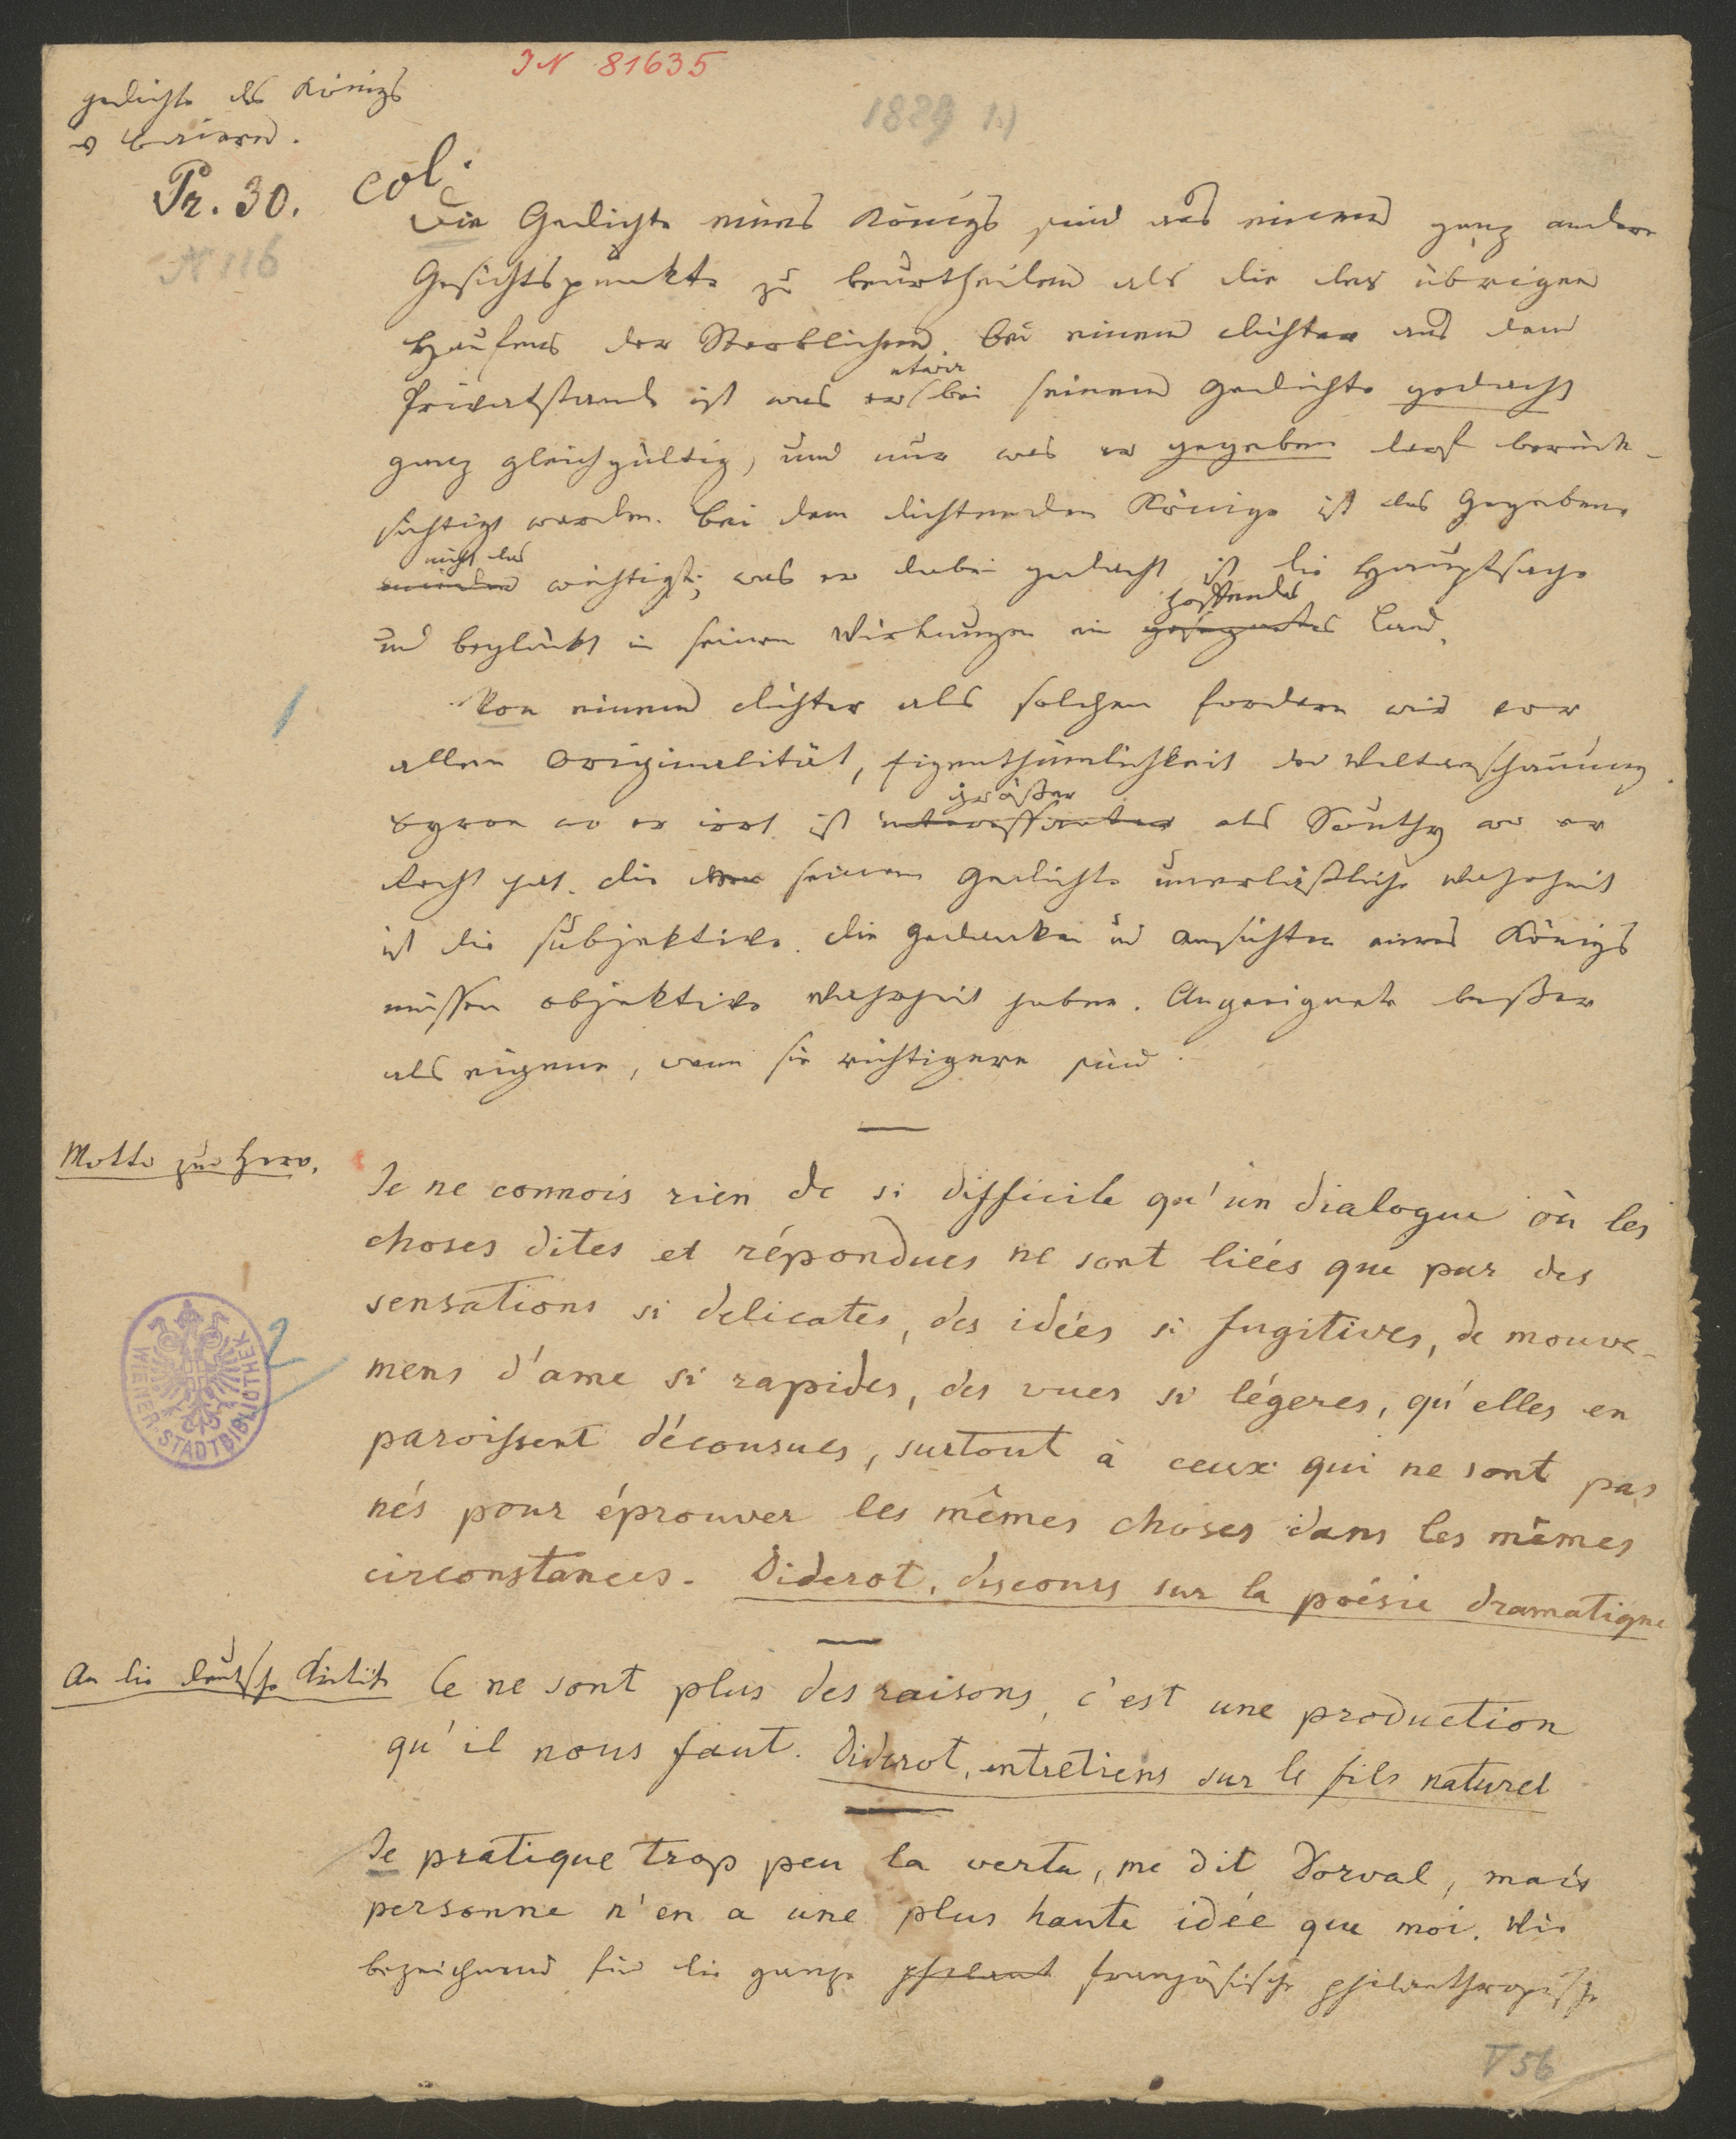 IN 81635
1829 1.)
Gedichte des Königs
v Baiern.
Pr. 30.
col.
N 116
Die Gedichte eines Königs sind aus einem ganz andern
Gesichtspunkte zu beurtheilen als die des übrigen
Haufens der Sterblichen. Bei einem Dichter aus dem
etwa
Privatstande ist was er bei seinem Gedichte gedacht
ganz gleichgültig, und nur was er gegeben darf berück-
sichtigt werden. Bei dem dichtenden Könige ist das Gegebene
nicht das
minder wichtigste; was er dabei gedacht ist die Hauptsache
hoffendes
und beglückt in seinen Wirkungen ein gesegnetes Land.
1
Von einem Dichter als solchen fordern wir vor
allem Originalität, Eigenthümlichkeit der Weltanschauung.
größer
Byron wo er irrt ist interessanter als Southy wo er
Recht hat. Die seinem Gedichte unerläßliche Wahrheit
ist die subjektive. Die Gedanken und Ansichten eines Königs
müssen objektive Wahrheit haben. Angeeignete besser
als eigene, wenn sie richtigere sind.
Motto zur Hero.
Je ne connois rien de si difficile qu'un dialogue où les
choses dites et répondues ne sont liées que par des
sensations si delicates, des idées si fugitives, de mouve-
mens d'ame si rapides, des vues si légeres, qu'elles en
paroissent décousues, surtout à ceux qui ne sont pas
nés pour éprouver les mêmes choses dans les mêmes
circonstances. Diderot, discours sur la poésie dramatique
2
WIENER STADTBIBLIOTHEK
An die deutsche Kritik
Ce ne sont plus des raisons, c'est une production
qu'il nous faut. Diderot, entretiens sur le fils naturel
Je pratique trop peu la vertu, me dit Dorval, mais
personne n'en a une plus haute idée que moi. Wie
bezeichnend für die ganze philant französische philanthropische
T 56